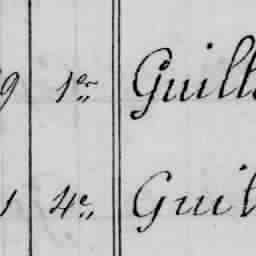 9 1er Guill
1 4e Guil